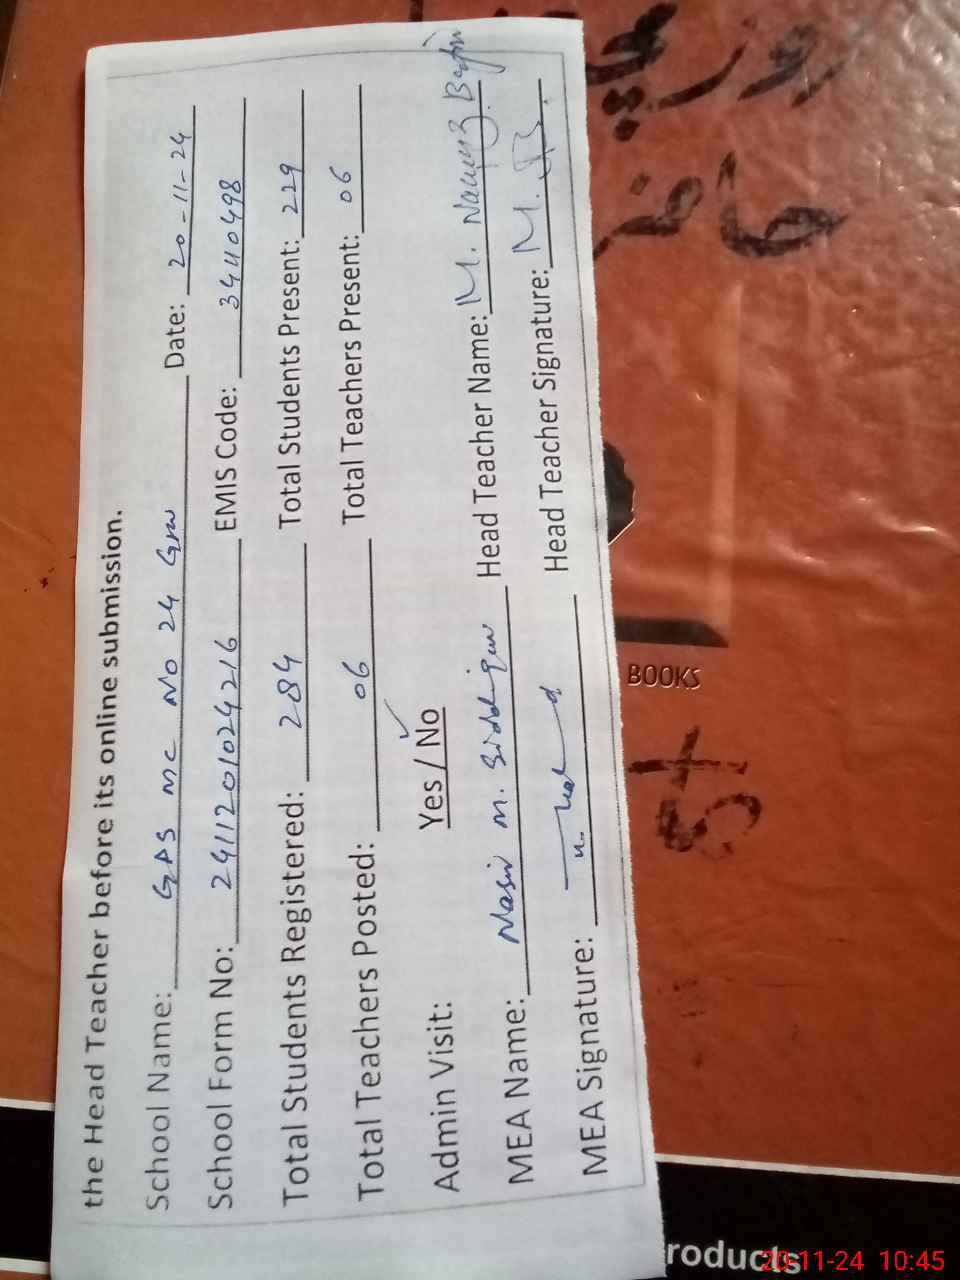 the Head Teacher before its online submission.
School Name: GPS MC No 24 Grw Date: 20-11-24
School Form No: 2411201024216 EMIS Code: 34110498
Total Students Registered: 284 Total Students Present: 229
Total Teachers Posted: 06 Total Teachers Present: 06
Admin Visit: Yes / No ✓
MEA Name: Nasir M. Head Teacher Name: M.
MEA Signature: Head Teacher Signature: M.
حاضر
BOOKS
roducts
20-11-24 10:45